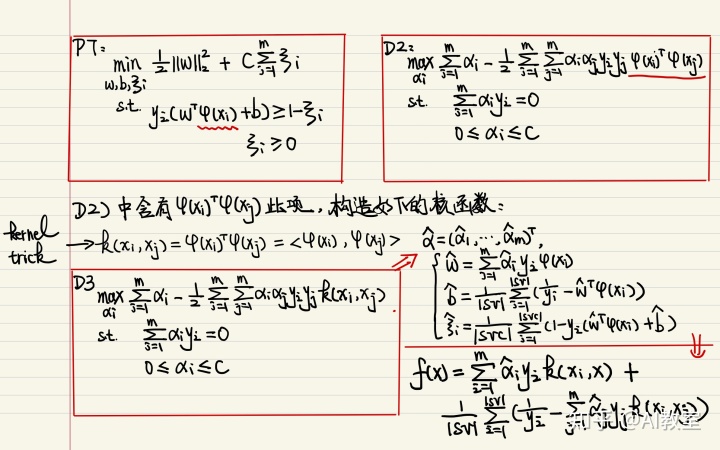 P7:
min 1/2 ||w||₂² + C Σᵢ₌₁ᵐ ξᵢ
w,b,ξᵢ
s.t. yᵢ(wᵀφ(xᵢ)+b) ≥ 1-ξᵢ
ξᵢ ≥ 0
D2:
max Σᵢ₌₁ᵐ αᵢ - 1/2 Σᵢ₌₁ᵐ Σⱼ₌₁ᵐ αᵢαⱼyᵢyⱼ φ(xᵢ)ᵀφ(xⱼ)
αᵢ
st. Σᵢ₌₁ᵐ αᵢyᵢ = 0
0 ≤ αᵢ ≤ C
D2) 中含有 φ(xᵢ)ᵀφ(xⱼ) 此项，构造如下的核函数：
kernel
trick
→ k(xᵢ,xⱼ) = φ(xᵢ)ᵀφ(xⱼ) = <φ(xᵢ), φ(xⱼ)>
D3
max Σᵢ₌₁ᵐ αᵢ - 1/2 Σᵢ₌₁ᵐ Σⱼ₌₁ᵐ αᵢαⱼyᵢyⱼ k(xᵢ,xⱼ)
αᵢ
st. Σᵢ₌₁ᵐ αᵢyᵢ = 0
0 ≤ αᵢ ≤ C
α̂ = (α̂₁, ⋯, α̂ₘ)ᵀ,
ŵ = Σᵢ₌₁ᵐ α̂ᵢyᵢφ(xᵢ)
b̂ = 1/|SV| Σᵢ₌₁^|SV| (1/yᵢ - ŵᵀφ(xᵢ))
ξ̂ᵢ = 1/|SVC| Σᵢ₌₁^|SVC| (1-yᵢ(ŵᵀφ(xᵢ)+b̂)
f(x) = Σᵢ₌₁ᵐ α̂ᵢyᵢk(xᵢ,x) +
1/|SV| Σᵢ₌₁^|SV| (1/yᵢ - Σⱼ₌₁ᵐ α̂ⱼyⱼk(xᵢ,xⱼ))
知乎 @AI教室